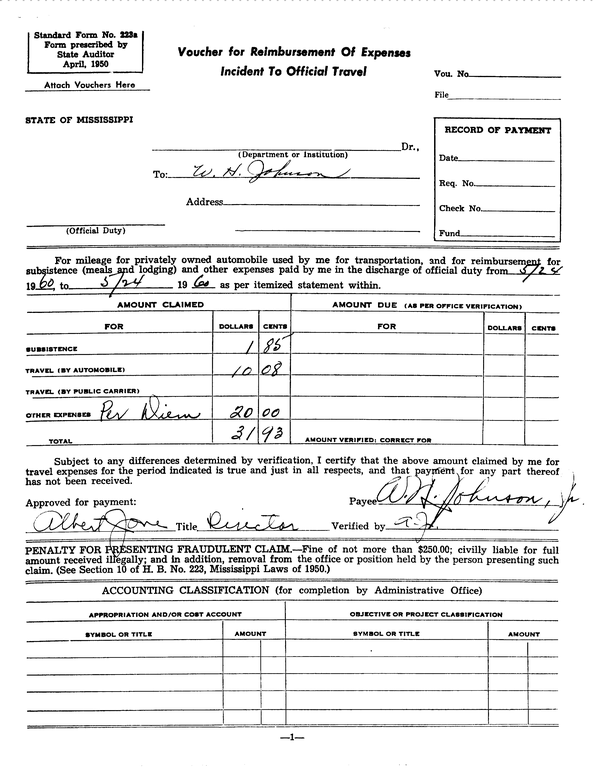 Standard Form No. 223a
Form prescribed by
State Auditor
April, 1950
Attach Vouchers Here
Voucher for Reimbursement Of Expenses
Incident To Official Travel
Vou. No.
File
STATE OF MISSISSIPPI
Dr.,
(Department or Institution)
To: W. H. Johnson
Address
(Official Duty)
RECORD OF PAYMENT
Date
Req. No.
Check No.
Fund
For mileage for privately owned automobile used by me for transportation, and for reimbursement for
subsistence (meals and lodging) and other expenses paid by me in the discharge of official duty from 5/24
1960, to 5/24 1960 as per itemized statement within.
AMOUNT CLAIMED AMOUNT DUE (AS PER OFFICE VERIFICATION)
FOR DOLLARS CENTS FOR DOLLARS CENTS
SUBSISTENCE 1 85
TRAVEL (BY AUTOMOBILE) 10 08
TRAVEL (BY PUBLIC CARRIER)
OTHER EXPENSES Per Diem 20 00
TOTAL 31 93 AMOUNT VERIFIED: CORRECT FOR
Subject to any differences determined by verification, I certify that the above amount claimed by me for
travel expenses for the period indicated is true and just in all respects, and that payment for any part thereof
has not been received.
Approved for payment: Payee W. H. Johnson, Jr.
Albert Jone Title Director Verified by
PENALTY FOR PRESENTING FRAUDULENT CLAIM.—Fine of not more than $250.00; civilly liable for full
amount received illegally; and in addition, removal from the office or position held by the person presenting such
claim. (See Section 10 of H. B. No. 223, Mississippi Laws of 1950.)
ACCOUNTING CLASSIFICATION (for completion by Administrative Office)
APPROPRIATION AND/OR COST ACCOUNT OBJECTIVE OR PROJECT CLASSIFICATION
SYMBOL OR TITLE AMOUNT SYMBOL OR TITLE AMOUNT
—1—